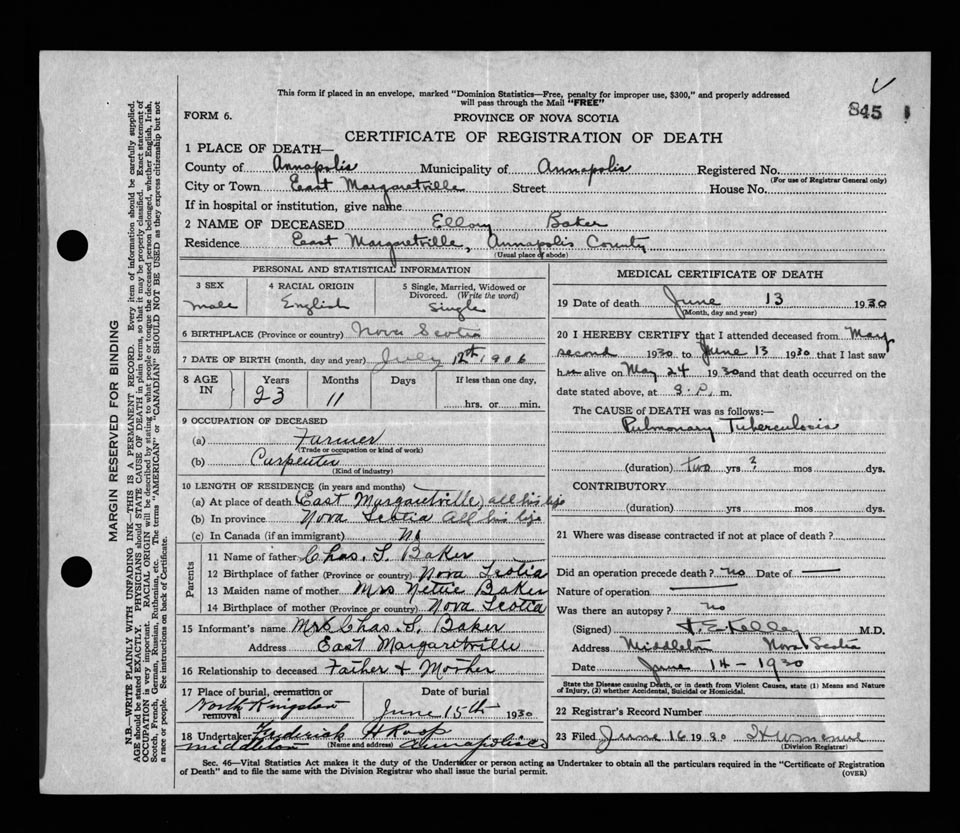 This form if placed in an envelope, marked "Dominion Statistics—Free, penalty for improper use, $300," and properly addressed
will pass through the Mail "FREE"
845
FORM 6.
PROVINCE OF NOVA SCOTIA
CERTIFICATE OF REGISTRATION OF DEATH
1 PLACE OF DEATH—
County of Annapolis Municipality of Annapolis Registered No.
(For use of Registrar General only)
City or Town East Margaretville Street House No.
If in hospital or institution, give name
2 NAME OF DECEASED Ellory Baker
Residence East Margaretville, Annapolis County
(Usual place of abode)
PERSONAL AND STATISTICAL INFORMATION
3 SEX 4 RACIAL ORIGIN 5 Single, Married, Widowed or
Divorced. (Write the word)
male English Single
6 BIRTHPLACE (Province or country) Nova Scotia
7 DATE OF BIRTH (month, day and year) July 12th 1906
8 AGE IN Years Months Days If less than one day,
23 11 hrs. or min.
9 OCCUPATION OF DECEASED
(a) Farmer
(Trade or occupation or kind of work)
(b) Carpenter
(Kind of industry)
10 LENGTH OF RESIDENCE (in years and months)
(a) At place of death East Margaretville, all his life
(b) In province Nova Scotia all his life
(c) In Canada (if an immigrant) no
Parents
11 Name of father Chas. S. Baker
12 Birthplace of father (Province or country) Nova Scotia
13 Maiden name of mother Mrs Nettie Baker
14 Birthplace of mother (Province or country) Nova Scotia
15 Informant's name Mrs Chas. S. Baker
Address East Margaretville
16 Relationship to deceased Father & Mother
17 Place of burial, cremation or
removal North Kingston
Date of burial
June 15th 1930
18 Undertaker Frederick H Roop
middleton (Name and address) Annapolis Co
MEDICAL CERTIFICATE OF DEATH
19 Date of death June 13 1930
(Month, day and year)
20 I HEREBY CERTIFY that I attended deceased from May
second 1930 to June 13 1930 that I last saw
him alive on May 24 1930 and that death occurred on the
date stated above, at 3. P. m.
The CAUSE OF DEATH was as follows:—
Pulmonary Tuberculosis
(duration) two yrs ? mos dys.
CONTRIBUTORY
(duration) yrs mos dys.
21 Where was disease contracted if not at place of death?
Did an operation precede death? no Date of —
Nature of operation —
Was there an autopsy? no
(Signed) Kelley M.D.
Address Middleton Nova Scotia
Date June 14 – 1930
State the Disease causing Death, or in death from Violent Causes, state (1) Means and Nature
of Injury, (2) whether Accidental, Suicidal or Homicidal.
22 Registrar's Record Number
23 Filed June 16 1930
(Division Registrar)
Sec. 46—Vital Statistics Act makes it the duty of the Undertaker or person acting as Undertaker to obtain all the particulars required in the "Certificate of Registration
of Death" and to file the same with the Division Registrar who shall issue the burial permit.
(OVER)
MARGIN RESERVED FOR BINDING
N.B.—WRITE PLAINLY WITH UNFADING INK—THIS IS A PERMANENT RECORD. Every item of information should be carefully supplied.
AGE should be stated EXACTLY. PHYSICIANS should STATE CAUSE OF DEATH in plain terms, so that it may be properly classified. Exact statement of
OCCUPATION is very important. RACIAL ORIGIN will be described by stating to what people or tongue the deceased person belonged, whether English, Irish,
Scotch, French, German, Russian, Ruthenian, etc. The terms "AMERICAN" or "CANADIAN" SHOULD NOT BE USED as they express citizenship but not
a race or people. See instructions on back of Certificate.